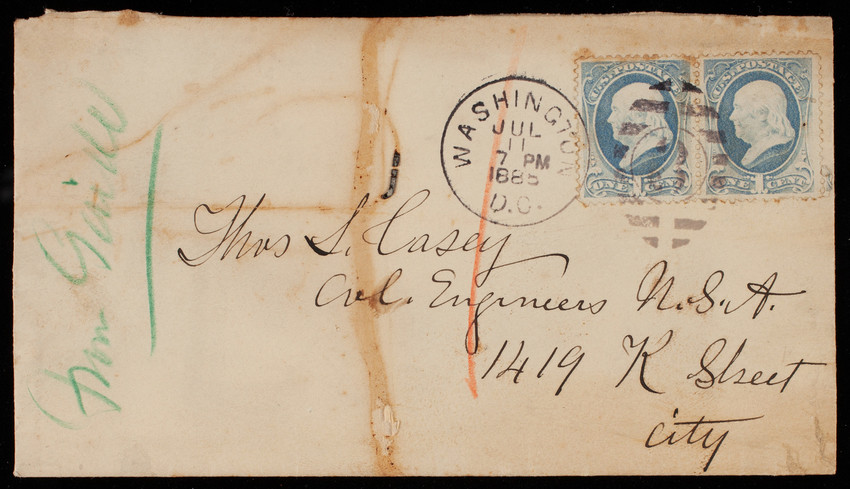 WASHINGTON
JUL
11
7 PM
1885
D.C.
U.S. POSTAGE
ONE CENT
U.S. POSTAGE
ONE CENT
Thos L. Casey
Col. Engineers U.S.A.
1419 K Street
City
from